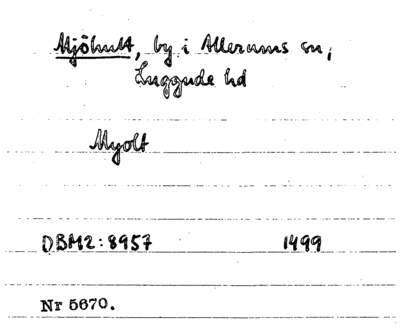 Mjöhult, by i Allerums sn,
Luggude hd
Myolt
DBM2:8957 1499
Nr 5670.